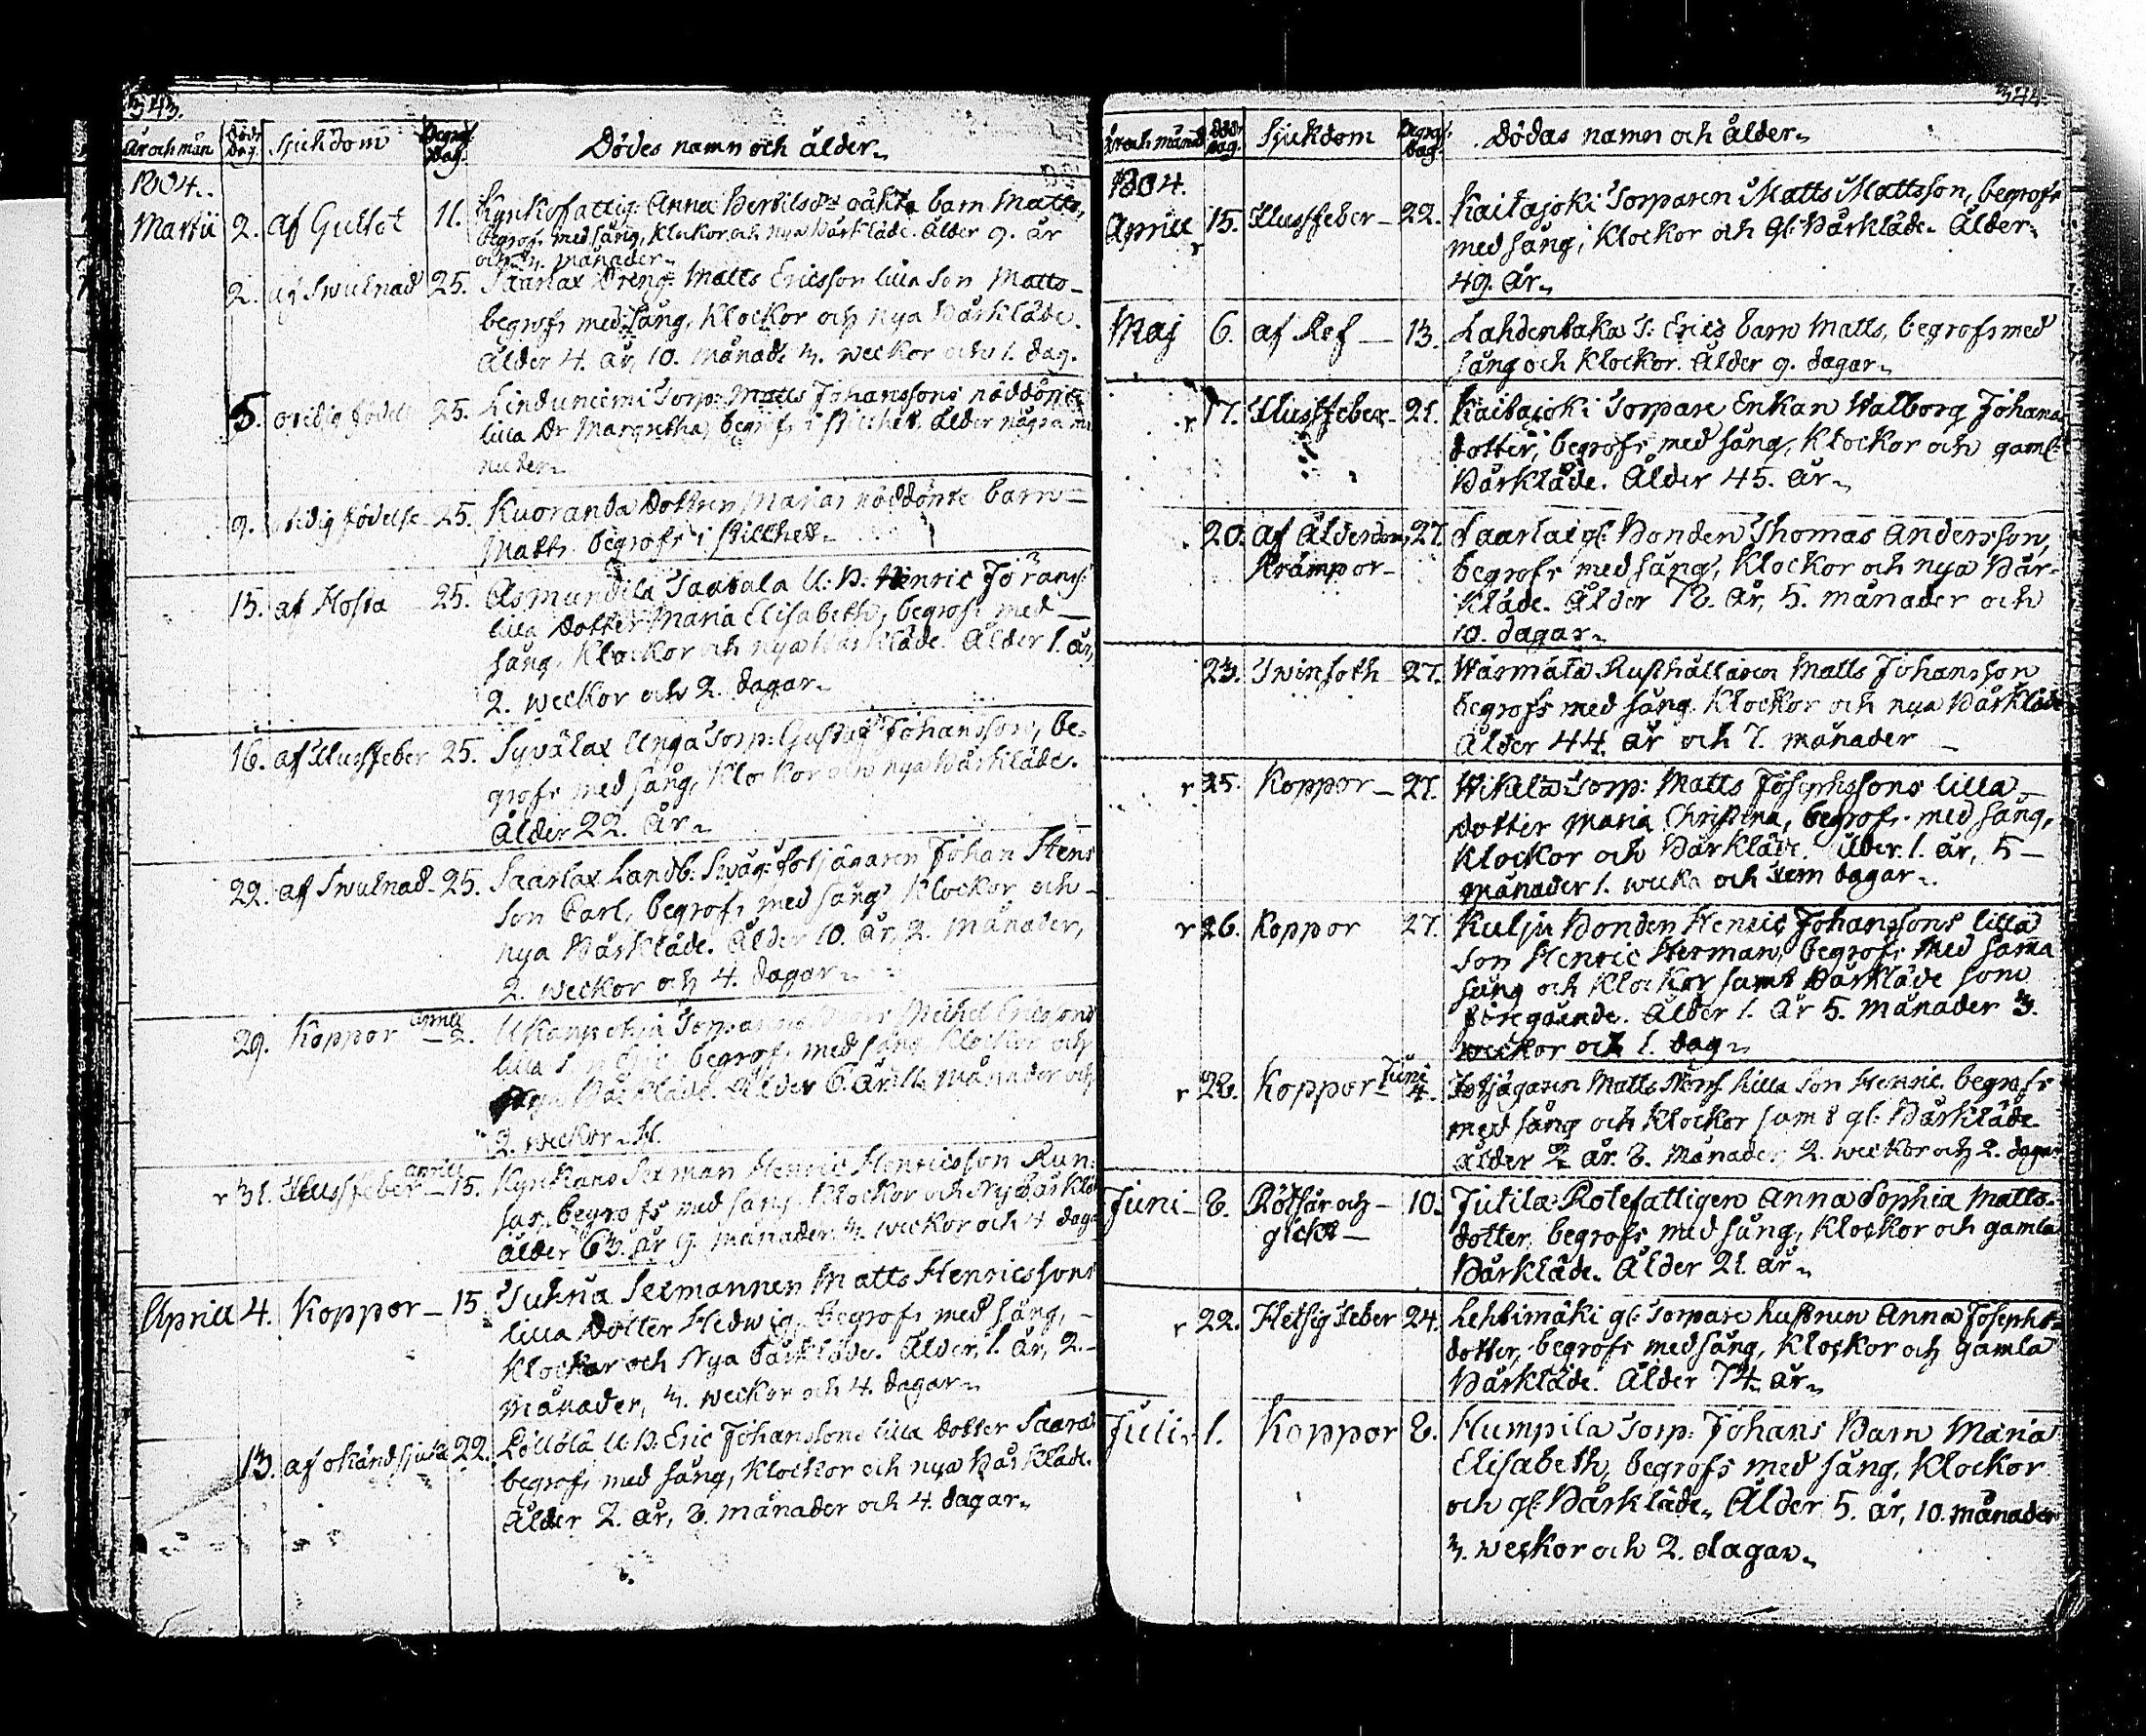 343.
År och mån Död: Dag. Sjukdom Begrof: Dag. Dödes namn och ålder
1804.
Martii 2. af Gulsot 11. Kyrkofattig: Anna Bertilsdrs oäkta barn Matts,
begrofs med sång, klockor och nya Bårkläde. Ålder 9. år
och 3. månader
2. af Swulnad 25. Saarlax Dreng: Matts Ericsson lilla son Matts
begrofs med sång, klockor och nya Bårkläde.
Ålder 4. år, 10. månad. 3. weckor och 1. dag.
5. otidig födels 25. Linduniemi Torp: Matts Johanssons nöddönte
lilla Dr Margretha, begrofs i stillhet, ålder några mi
nuter
9. otidig födelse 25. Kuoranda Dottren Marias nöddönte barn
Matts. begrofs i stillhet.
15. af Hosta 25. Asmundila Taatala U: B: Henric Jörans:
lilla Dotter Maria Elisabeth, begrofs med
sång, klockor och nya Bårkläde. Ålder 1. år,
2. weckor och 2. dagar
16. af Flussfeber 25. Sywälax Unga Torp: Gustaf Johansson, be-
grofs med sång, klockor och nya Bårkläde.
Ålder 22. År
22. af Swulnad 25. Saarlax Landb: Swåg: fotjägaren Johan Stens
son Carl, begrofs med sång klockor och
nya Bårkläde. Ålder 10. år, 2. månader,
2. weckor och 4. dagar
29. Koppor aprill 2. Torparens Michel Ericssons
lilla begrofs med sång klockor och
nya Bårkläde. Ålder 6. år 11. månader och
2. weckor
r 31. Flussfeber aprill 15. Kyrkans Sexman Henric Henricsson Run-
sas, begrofs med sång. klockor och Ny Bårkläde
ålder 63. år 9. månader 3. weckor och 4 daga
Aprill 4. Koppor 15. Juhna Sexmannen Matts Henricssons
lilla Dotter Hedwig, begrofs med sång,
klockor och Nya bårkläde. Ålder, 1. år, 2.
månader, 3. weckor och 4. dagar
13. af okänd sjuka 22. Löllölä U: B: Eric Johanssons lilla dotter Saara
begrofs med sång, klockor och nya Bårkläde.
Ålder 2. år, 8. månader och 4. dagar
344.
År och månad Död: Dag. Sjukdom Begrof: Dag. Dödas namn och ålder
1804.
Aprill r 15. Flussfeber 22. Kaitajoki Torparen Matts Mattsson, begrofs
med sång, klockor och gl: Bårkläde. Ålder
49. år
Maj 6. af Ref 13. Lahdentaka T: Erics barn Matts, begrofs med
sång och klockor. Ålder 9. dagar
r 17. Flussfeber 21. Kaitajoki Torpare Enkan Walborg Johans
dotter, begrofs med sång, klockor och gaml:
Bårkläde. Ålder 45. år
20. af Ålderdoms 27. Saarlax gl: Bonden Thomas Andersson,
Krämpor begrofs med sång, klockor och nya Bår-
kläde. Ålder 78. år, 5. månader och
10. dagar
23. Twinsoth 27. Wärmälä Rusthållaren Matts Johansson
begrofs med sång. klockor och nya Bårkläde
Ålder 44. år och 7. månader
r 25. Koppor 27. Wikila Torp: Matts Josephssons lilla
dotter Maria Christina, begrofs med sång,
klockor och Bårkläde. Ålder. 1. år, 5
månader 1. wecka och fem dagar
r 26. Koppor 27. Kulju Bonden Henric Johanssons lilla
son Henric Herman, begrofs med samma
sång och klockor samt Bårkläde som
föregående. Ålder 1. år 5. månader 3.
weckor och 1. dag
r 28. Koppor Juni 4. Fotjägaren Matts Norfs lilla son Henric. begrofs
med sång och klockor samt gl: Bårkläde.
ålder 2 år. 8. månader, 2. weckor och 2. dagar
Juni 8. Rötsår och 10. Jutila Rotefattigen Anna Sophia Matts-
gickt dotter, begrofs med sång, klockor och gamla
Bårkläde. Ålder 21. år
r 22. Hetsig feber 24. Lehtimäki gl: Torpare hustrun Anna Josephs-
dotter, begrofs med sång, klockor och gamla
Bårkläde. Ålder 74. år
Juli 1. Koppor 8. Humpila Torp: Johans Barn Maria
Elisabeth, begrofs med sång, klockor
och gl: Bårkläde. Ålder 5. år, 10. månader
3. weckor och 2. dagar